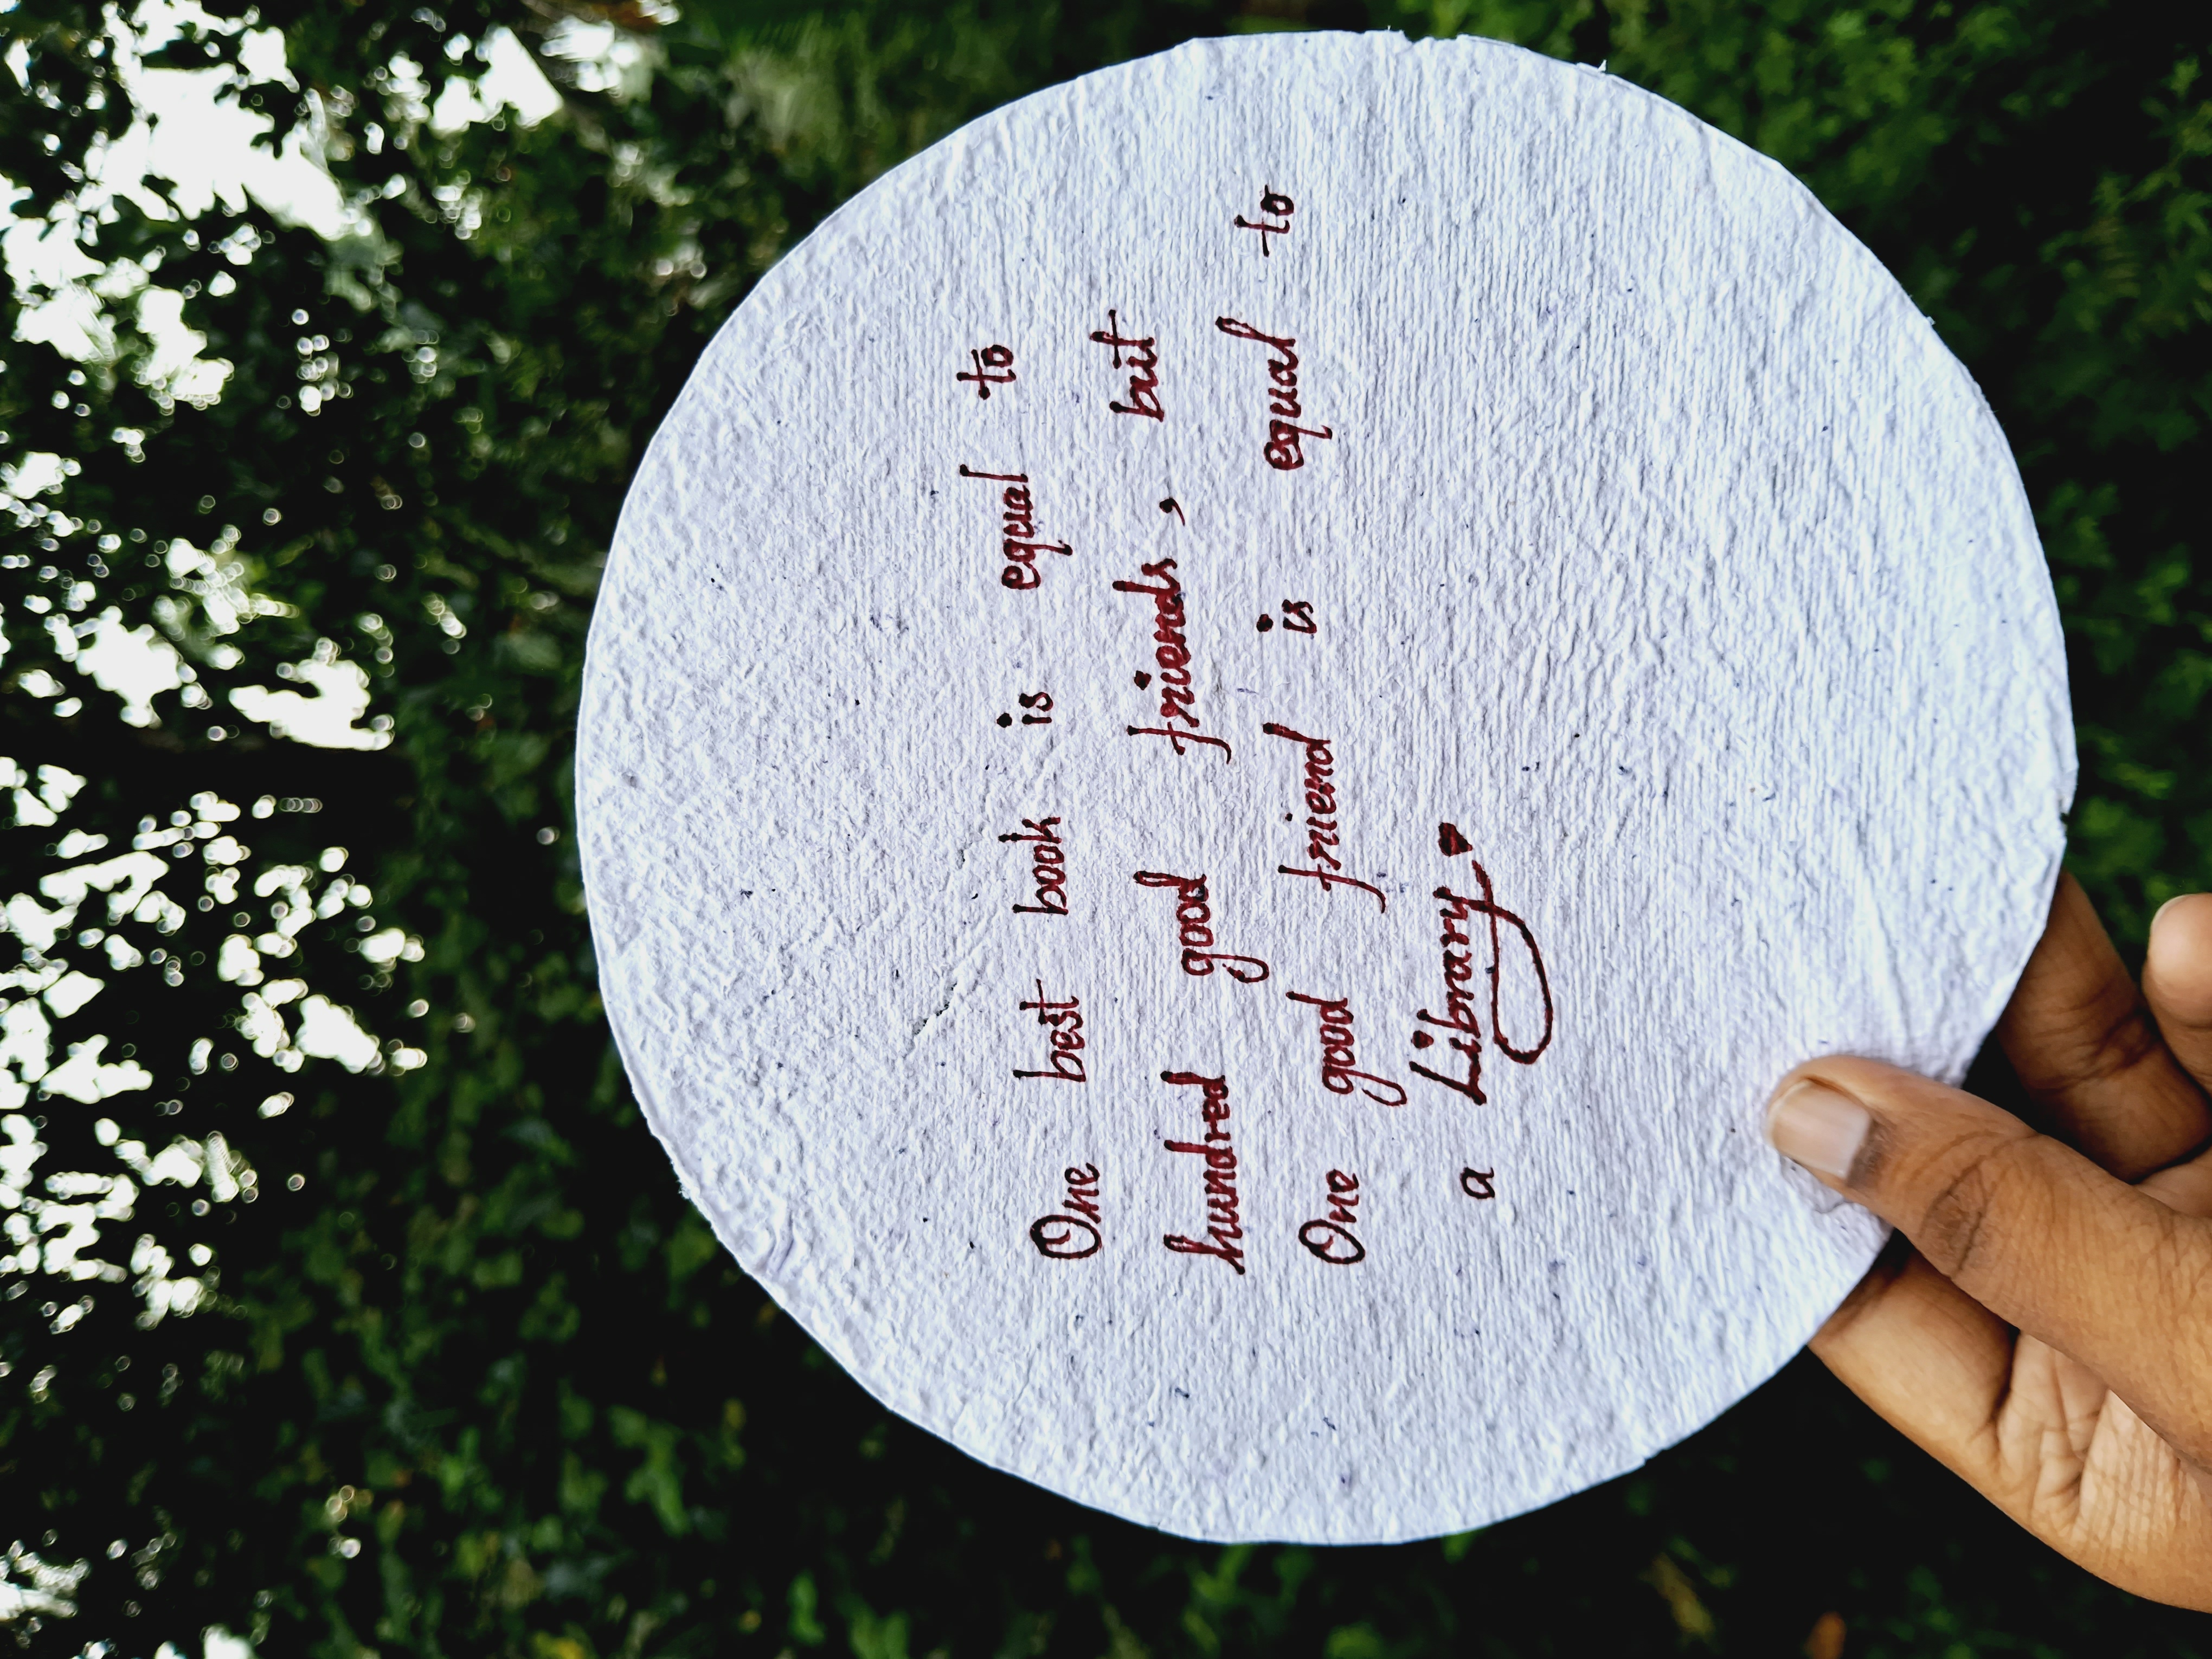 One best book is equal to
hundred good friends, but
One good friend is equal to
a Library.